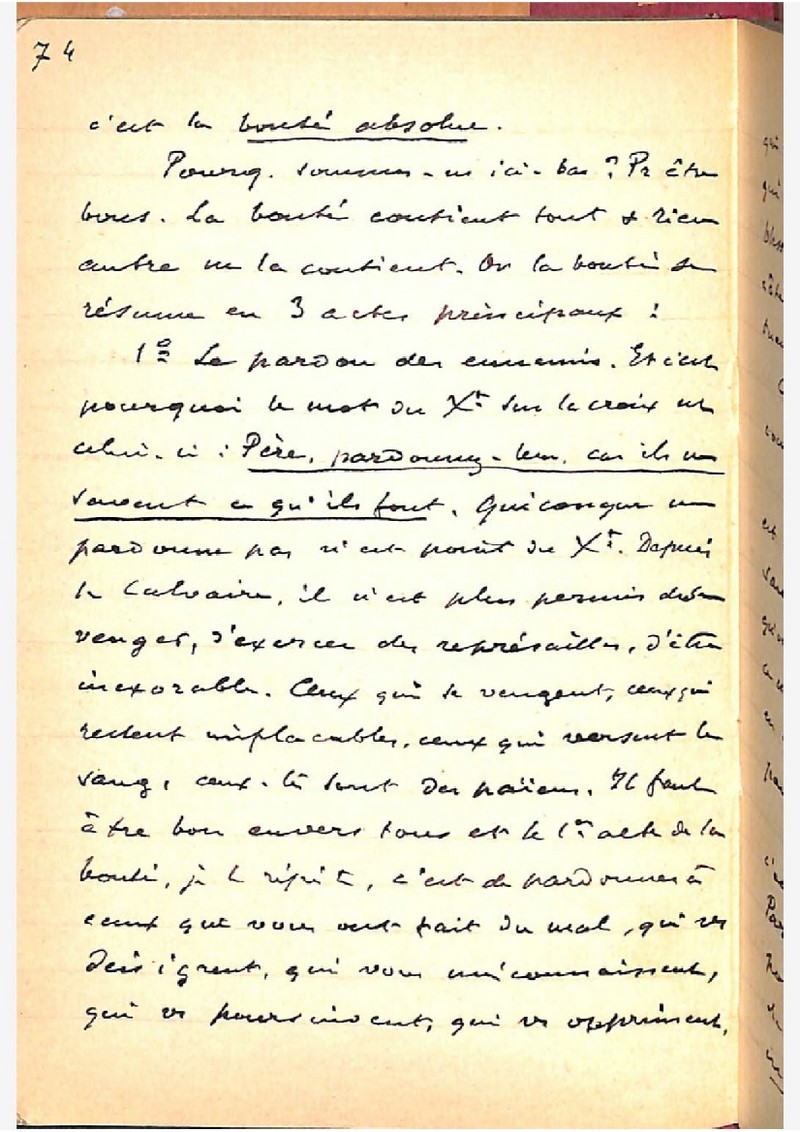 74
c'est la bonté absolue.
Pourq. sommes-ns ici-bas ? Pr être
bons. La bonté contient tout & rien
autre ne la contient. Or la bonté se
résume en 3 actes principaux :
1º Le pardon des ennemis. Et c'est
pourquoi le mot du Xt sur la croix est
celui-ci : Père, pardonnez-leur, car ils ne
savent ce qu'ils font. Quiconque ne
pardonne pas n'est point du Xt. Depuis
le Calvaire, il n'est plus permis de se
venger, d'exercer des représailles, d'être
inexorable. Ceux qui se vengent, ceux qui
restent implacables, ceux qui versent le
sang, ceux-là sont des païens. Il faut
être bon envers tous et le 1er acte de la
bonté, je le répète, c'est de pardonner à
ceux qui vous ont fait du mal, qui vs
dénigrent, qui vous méconnaissent,
qui vs poursuivent, qui vs oppriment,